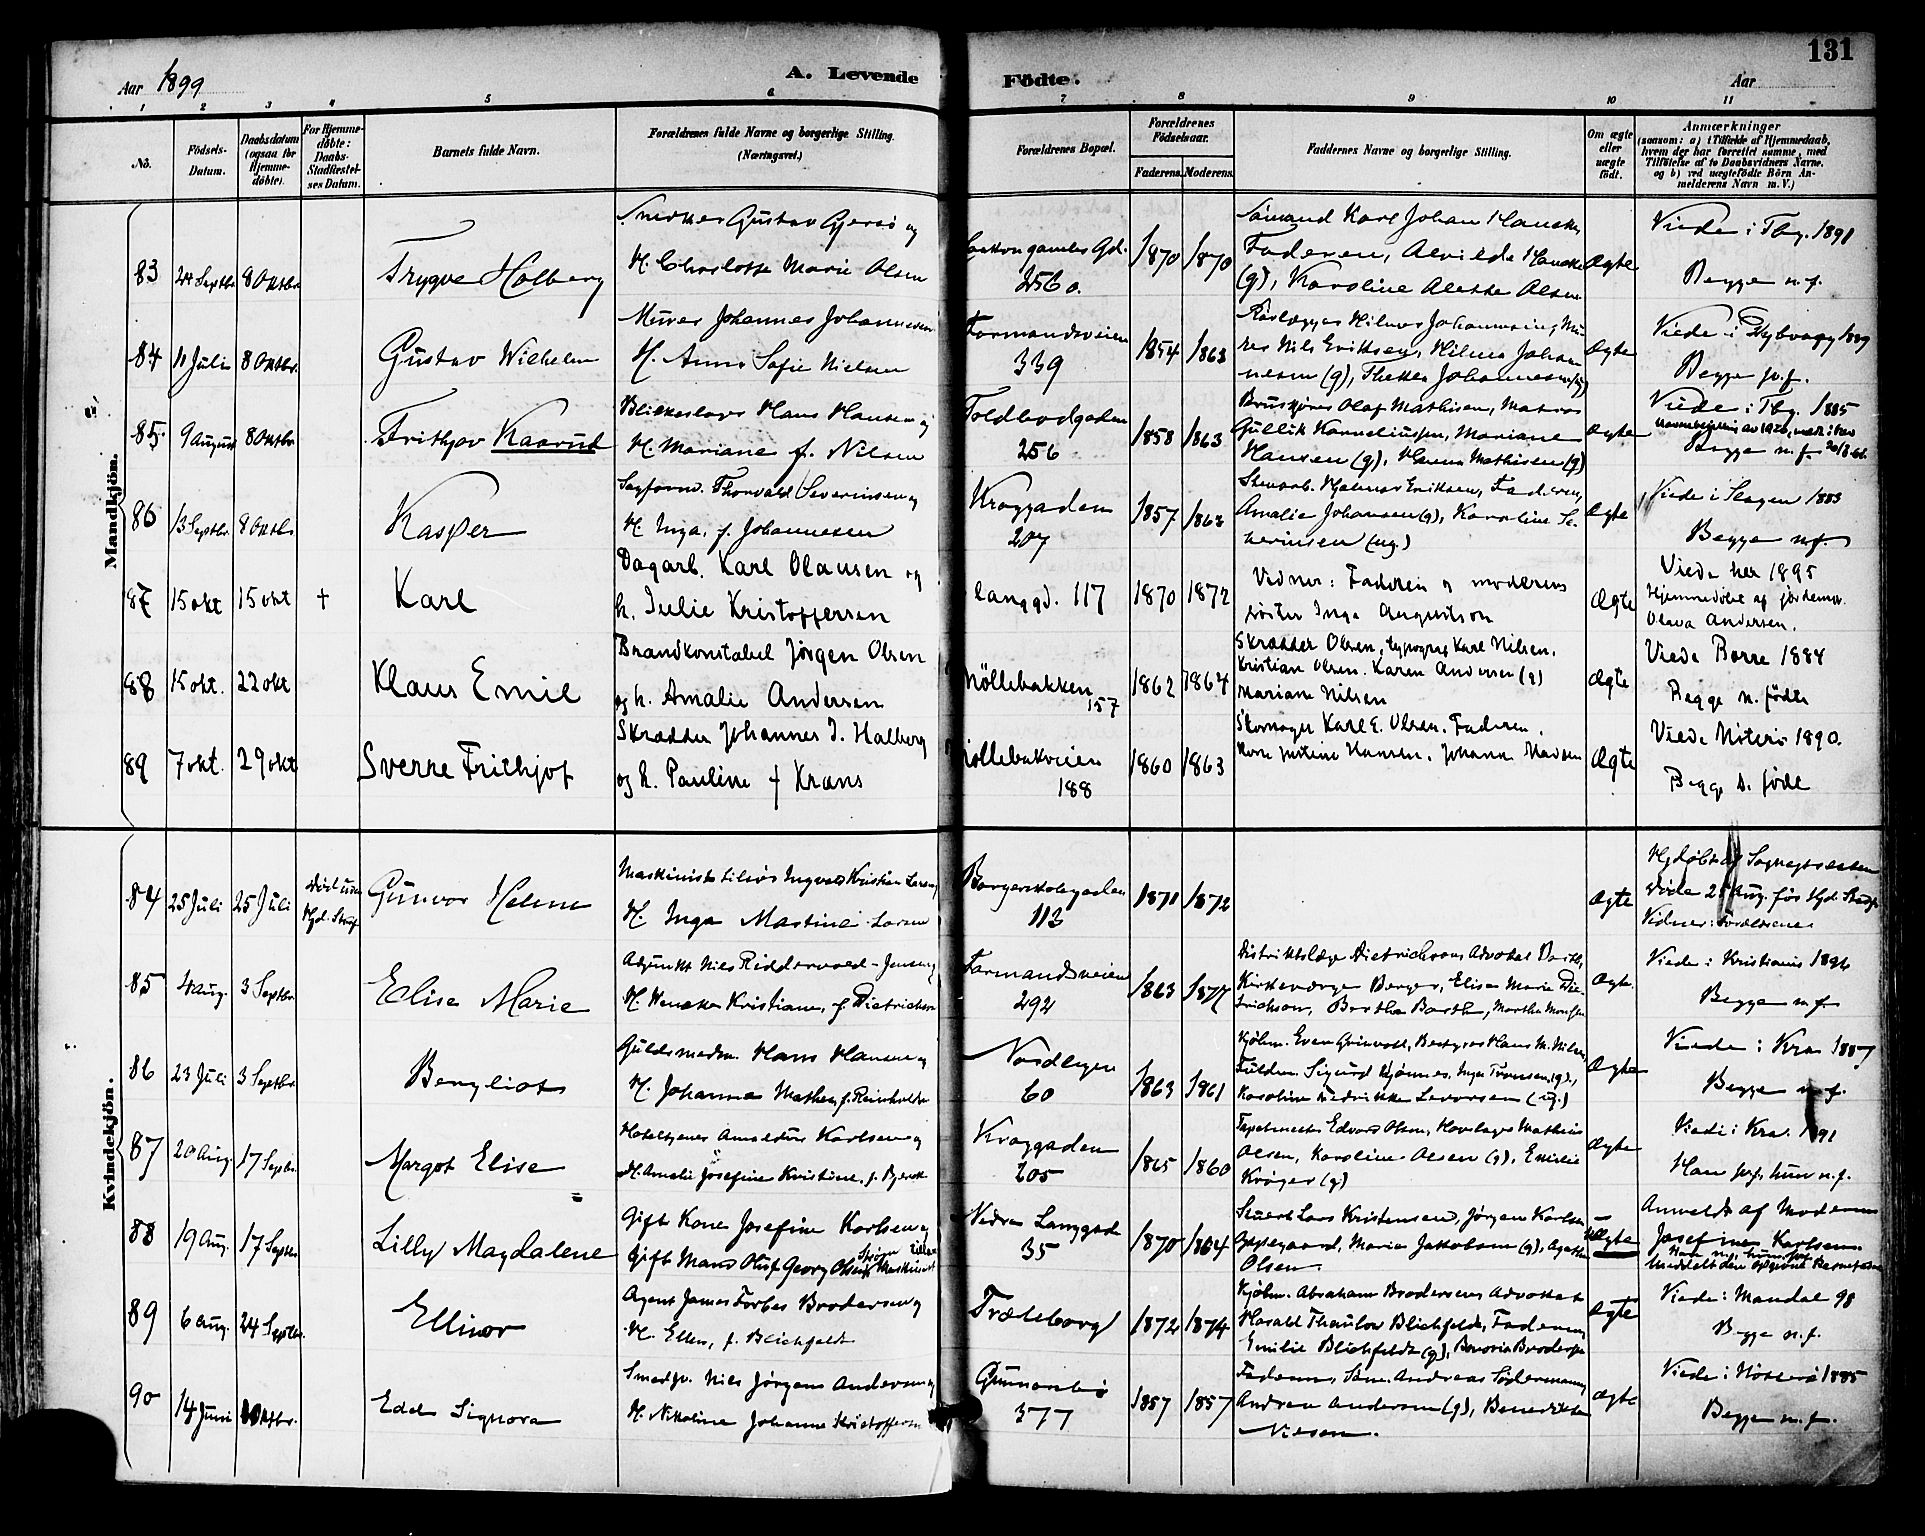 131
Aar 1899
A. Levende Födte.
Aar
1 2 3 4 5 6 7 8 9 10 11
No.
Födsels-Datum.
Daabsdatum (ogsaa for Hjemme-döbte).
For Hjemme-döbte: Daabs-Stadfæstel-ses Datum.
Barnets fulde Navn.
Forældrenes fulde Navne og borgerlige Stilling. (Næringsvei.)
Forældrenes Bopæl.
Forældrenes Födselsaar.
Faderens. Moderens.
Faddernes Navne og borgerlige Stilling.
Om ægte eller uægte födt.
Anmærkninger
(saasom: a) i Tilfælde af Hjemmedaab, hvem der har forrettet samme, med Tilföielse af to Daabsvidners Navne, og b) ved uægtefödte Börn An-melderens Navn m. V.)
Mandkjön.
83 24 Septbr 8 Oktbr. Trygve Holberg
Snedker Gustav Gjersö og
H. Charlotte Marie Olsen
256 a. 1870 1870
Sömand Karl Johan Hansen
Faderen, Alvilde Hansen
(g), Karoline Alette Olsen
Ægte
Viede i Tbg. 1891
Begge n.f.
84 11 Juli 8 Oktbr. Gustav Wilhelm
Murer Johannes Johannesen
H. Anna Sofie Nielsen
Farmandsveien
339 1854 1863
Nils Eriksen, Hilma Johan
nesen (g), Thekla Johannesen (ug)
Ægte
Viede i 1889
Begge
85 9 August 8 Oktbr Frithjov Kaarud
Blikkeslager Hans Hansen og
H. Mariane f. Nilsen
Toldbodgaden
256 1858 1863
Olaf Mathisen, Matros
Gullik Korneliussen, Mariane
Hansen (g), Hanna Mathisen (g)
Ægte
Viede i Tbg. 1885
Begge n.f.
86 13 Septbr. 8 Oktbr. Kasper
Thorvald Severinsen og
H. Inga, f. Johannesen
Kroggaden
207 1857 1863
Stenarb. Hjalmar Eriksen, Faderen,
Amalie Johansen (g), Karoline Se-
verinsen (ug.)
Ægte
Viede i Slagen 1883
Begge n.f.
87 15 okt 15 okt + Karl
Dagarb. Karl Olausen og
h. Julie Kristoffersen
Langgd. 117 1870 1872
Vidner: Faderen og moderens
søster Inga Augustson
Ægte
Viede her 1895
Hjemmedøbt af jordemor
Olava Andersen.
88 15 okt. 22 okt Klaus Emil
Brandkonstabel Jørgen Olsen
og h. Amalie Andersen
Møllebakken
157 1862 1864
Skrædder Olsen, typograf Karl Nilsen,
Kristian Olsen. Karen Andersen (g)
Mariane Nilsen
Ægte
Viede Borre 1884
Begge n. fødte
89 7 okt. 29 okt Sverre Frithjof
Skrædder Johannes J. Halberg
og h. Pauline f Kræns
Møllebakveien
188 1860 1863
Skomager Karl E. Olsen. Faderen.
Justine Hansen. Johanna Madsen
Ægte
Viede Nøterø 1890.
Begge fødte
Kvindekjön.
84 25 Juli 25 Juli Gunvor Helene
Ingvald Kristian Larsen
H. Inga Mastine Larsen
Borgerskolegaden
113 1871 1872
Ægte
Døde 25 Aug. før
Vidner: Forældrene
85 4 aug. 3 Septbr. Elise Marie
Adjunkt Nils Riddervold-Jensen og
H. Kristiane, f. Dietrichson
Farmandsveien
292 1863 1872
Distriktslæge Dietrichson, Advokat Barth,
Kirkeværge Berger, Elise Marie Die-
trichson, Bertha Barth, Martha Monsen
Ægte.
Viede i Kristiania 1896
Begge n.f.
86 23 Juli 3 Septbr. Bergliot
Guldsmedm. Hans Hansen og
H. Johanna Mathea, f. Reinholdt
Nordbyen
60 1863 1861
Kjøbm. Even Grinvold, Bestyrer Hans M. Nilsen,
Fuldm. Sigurd Kjønnes, Inga Tronsen (g),
Karoline Fredrikke Levorsen (ug.)
Ægte
Viede i Kra 1887
Begge n.f.
87 20 Aug. 17 Septbr. Margot Elise
Hoteltjener Karlsen og
H. Amalie Josefine Kristine, f. Bjerck
Kroggaden
205 1865 1860
Tapetmester Edvard Olsen, Hovslager Mathias
Olsen, Karoline Olsen (g), Emilie
Krøger (g)
Ægte
Viede i Kra. 1891
88 19 Aug. 17 Septbr Lilly Magdalene
Gift Kone Josefine Karlsen og
Gift Mand Oluf Georg Olsen
Nedre Langgad
35 1870 1864
Stuert Lars Kristensen, Jørgen Karlsen
Maria Jakobsen (g), Agathe
Olsen.
Uægte
Anmeldt af Moderen
Josefine Karlsen
89 6 aug. 24 Septbr. Ellinor
Agent James Forbes Brodersen og
H. Ellen, f. Blichfeldt
Træleborg 1872 1874
Kjøbm. Abraham Brodersen, Advokat
Harald Thaulow Blichfeldt, Faderen,
Emilie Blichfeldt (g), Brodersen
Ægte
Viede i Mandal 98
Begge n.f.
90 14 Juni Oktbr. Edel Signora
Nils Jørgen Andersen og
H. Nikoline Johanne Kristoffersen
Gunnarsbø
377 1857 1857
Faderen, Söm. Andreas Södermann,
Andrea Andersen (g), Benedikte
Nilsen.
Ægte
Viede i Nøtterø 1885
Begge n.f.